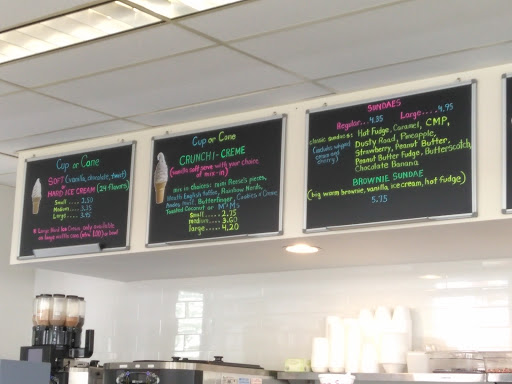 Cup or Cone
SOFT (vanilla, chocolate, twist)
or
HARD ICE CREAM (24 flavors)
Small.... 2.50
Medium.... 3.25
Large.... 3.95
* Large Hard Ice Cream only available
Cup or Cone
CRUNCH-CREME
(vanilla soft serve with your choice
of mix-in)
mix in choices: mini Reese's pieces,
Heath English toffee, Rainbow Nerds,
Andes mint, Butterfinger, Cookies & Creme,
Toasted Coconut or M&M's
Small..... 2.75
medium..... 3.60
large..... 4.20
SUNDAES
Regular...4.35 Large....4.95
Classic sundaes: Hot Fudge, Caramel, CMP,
(includes whipped cream and cherry)
Dusty Road, Pineapple,
Strawberry, Peanut Butter,
Peanut Butter Fudge, Butterscotch,
Chocolate Banana
BROWNIE SUNDAE
(big warm brownie, vanilla icecream, hot fudge)
5.75